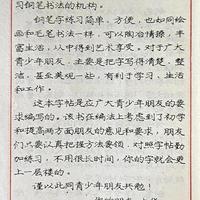 习钢笔书法的机构。
钢笔字练习简单，方便，也如同绘
画和毛笔书法一样，可以陶冶情操，丰
富生活，从中得到艺术享受。对于广大
青少年朋友，主要是把字写得清楚，整
洁，甚至美观一些，有利于学习，生活
和工作。
这本字帖是应广大青少年朋友的要
求编写的。该书在编法上考虑到了初学
和提高两方面朋友的意见和要求，朋友
们只要认真把握方法要领，对照字帖勤
加练习，不用很长时间，你的字就会更
上一层楼的。
谨以此同青少年朋友共勉！